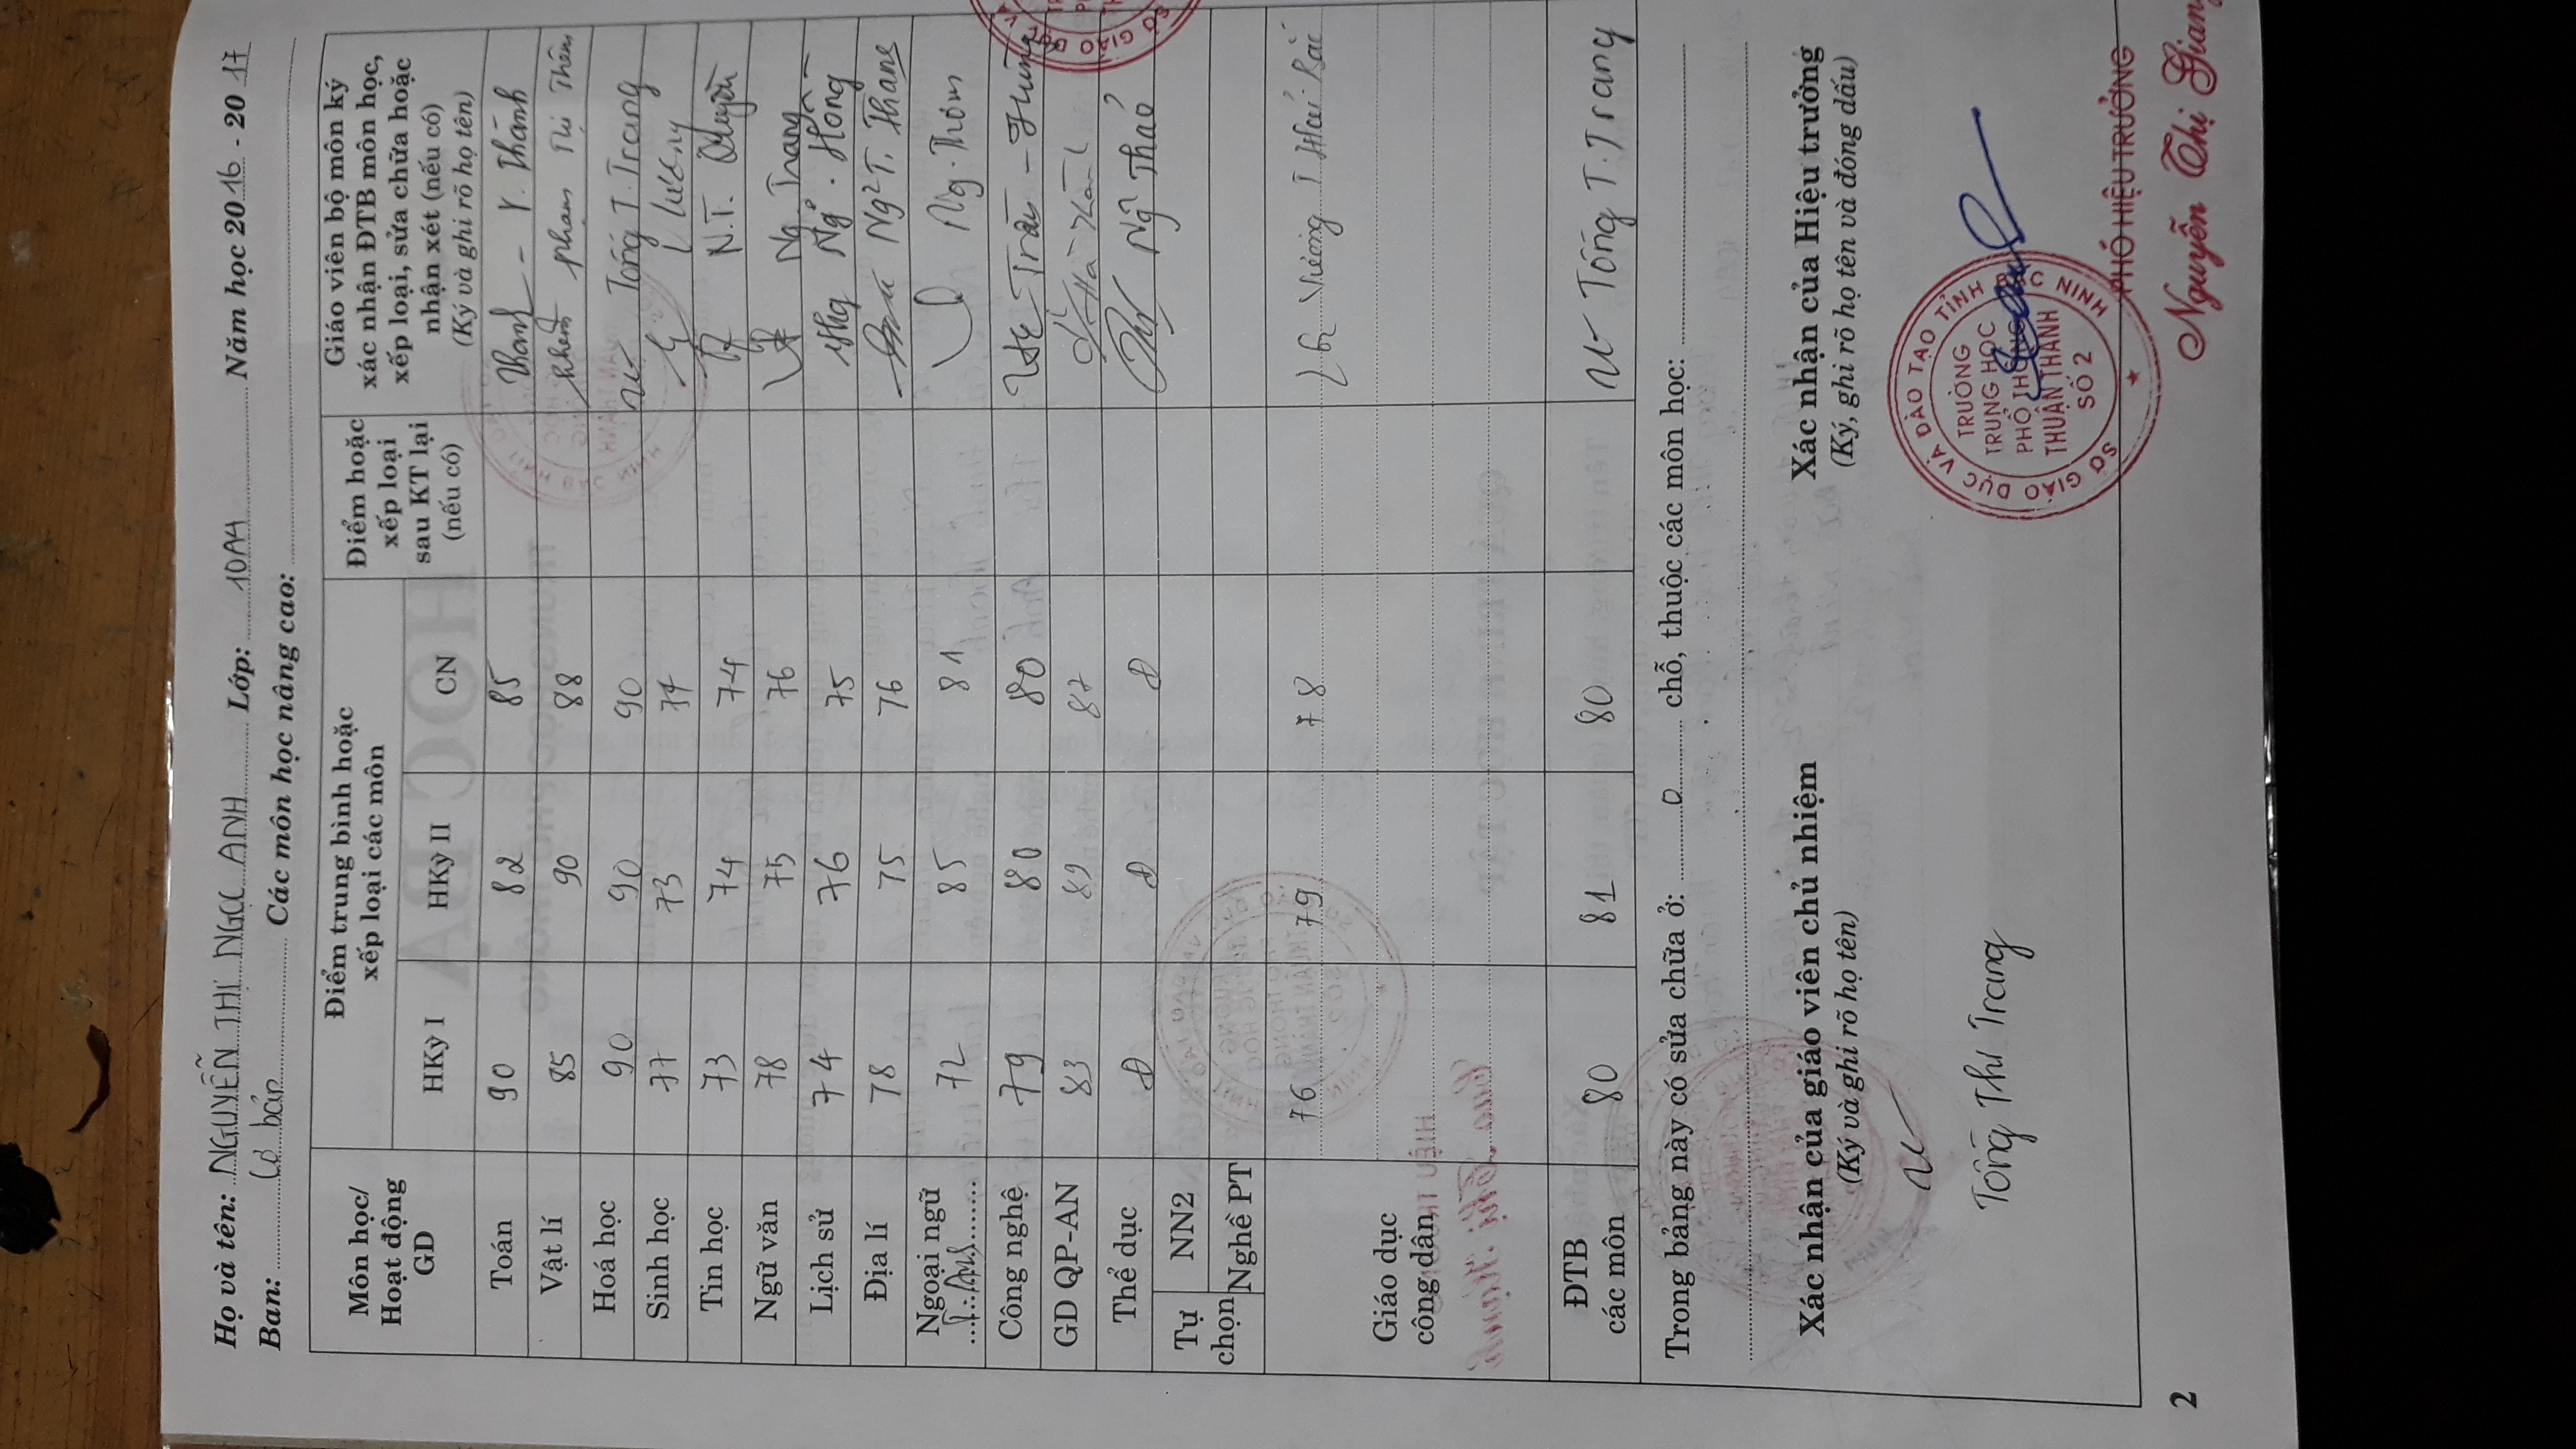 Họ và tên: NGUYỄN THỊ NGỌC ANH Lớp: 10A4 Năm học 2016 - 2017
Ban: Cơ bản Các môn học nâng cao:
Môn học/ Hoạt động GD
Điểm trung bình hoặc xếp loại các môn
HKỳ I HKỳ II CN
Điểm hoặc xếp loại sau KT lại (nếu có)
Giáo viên bộ môn ký xác nhận ĐTB môn học, xếp loại, sửa chữa hoặc nhận xét (nếu có)
(Ký và ghi rõ họ tên)
Toán 90 82 85 Thanh
Vật lí 85 90 88 Phạm Thị Thêm
Hoá học 90 90 90 Tống T. Trang
Sinh học 77 73 74
Tin học 73 74 74 N.T.
Ngữ văn 78 75 76 Ng Trang
Lịch sử 74 76 75 Hồng
Địa lí 78 75 76
Ngoại ngữ T. Anh 72 85 81 Ng. Thơm
Công nghệ 79 80 80 Trần
GD QP-AN 83 89 87
Thể dục Đ Đ Đ Thảo
Tự chọn NN2
Nghề PT
Giáo dục công dân 76 79 78 Vương T
ĐTB các môn 80 81 80 Tống T. Trang
Trong bảng này có sửa chữa ở: 0 chỗ, thuộc các môn học:
Xác nhận của giáo viên chủ nhiệm
(Ký và ghi rõ họ tên)
Tống Thị Trang
Xác nhận của Hiệu trưởng
(Ký, ghi rõ họ tên và đóng dấu)
SỞ GIÁO DỤC VÀ ĐÀO TẠO TỈNH BẮC NINH
TRƯỜNG
TRUNG HỌC
PHỔ THÔNG
THUẬN THÀNH
SỐ 2
PHÓ HIỆU TRƯỞNG
Nguyễn Thị Giang
2